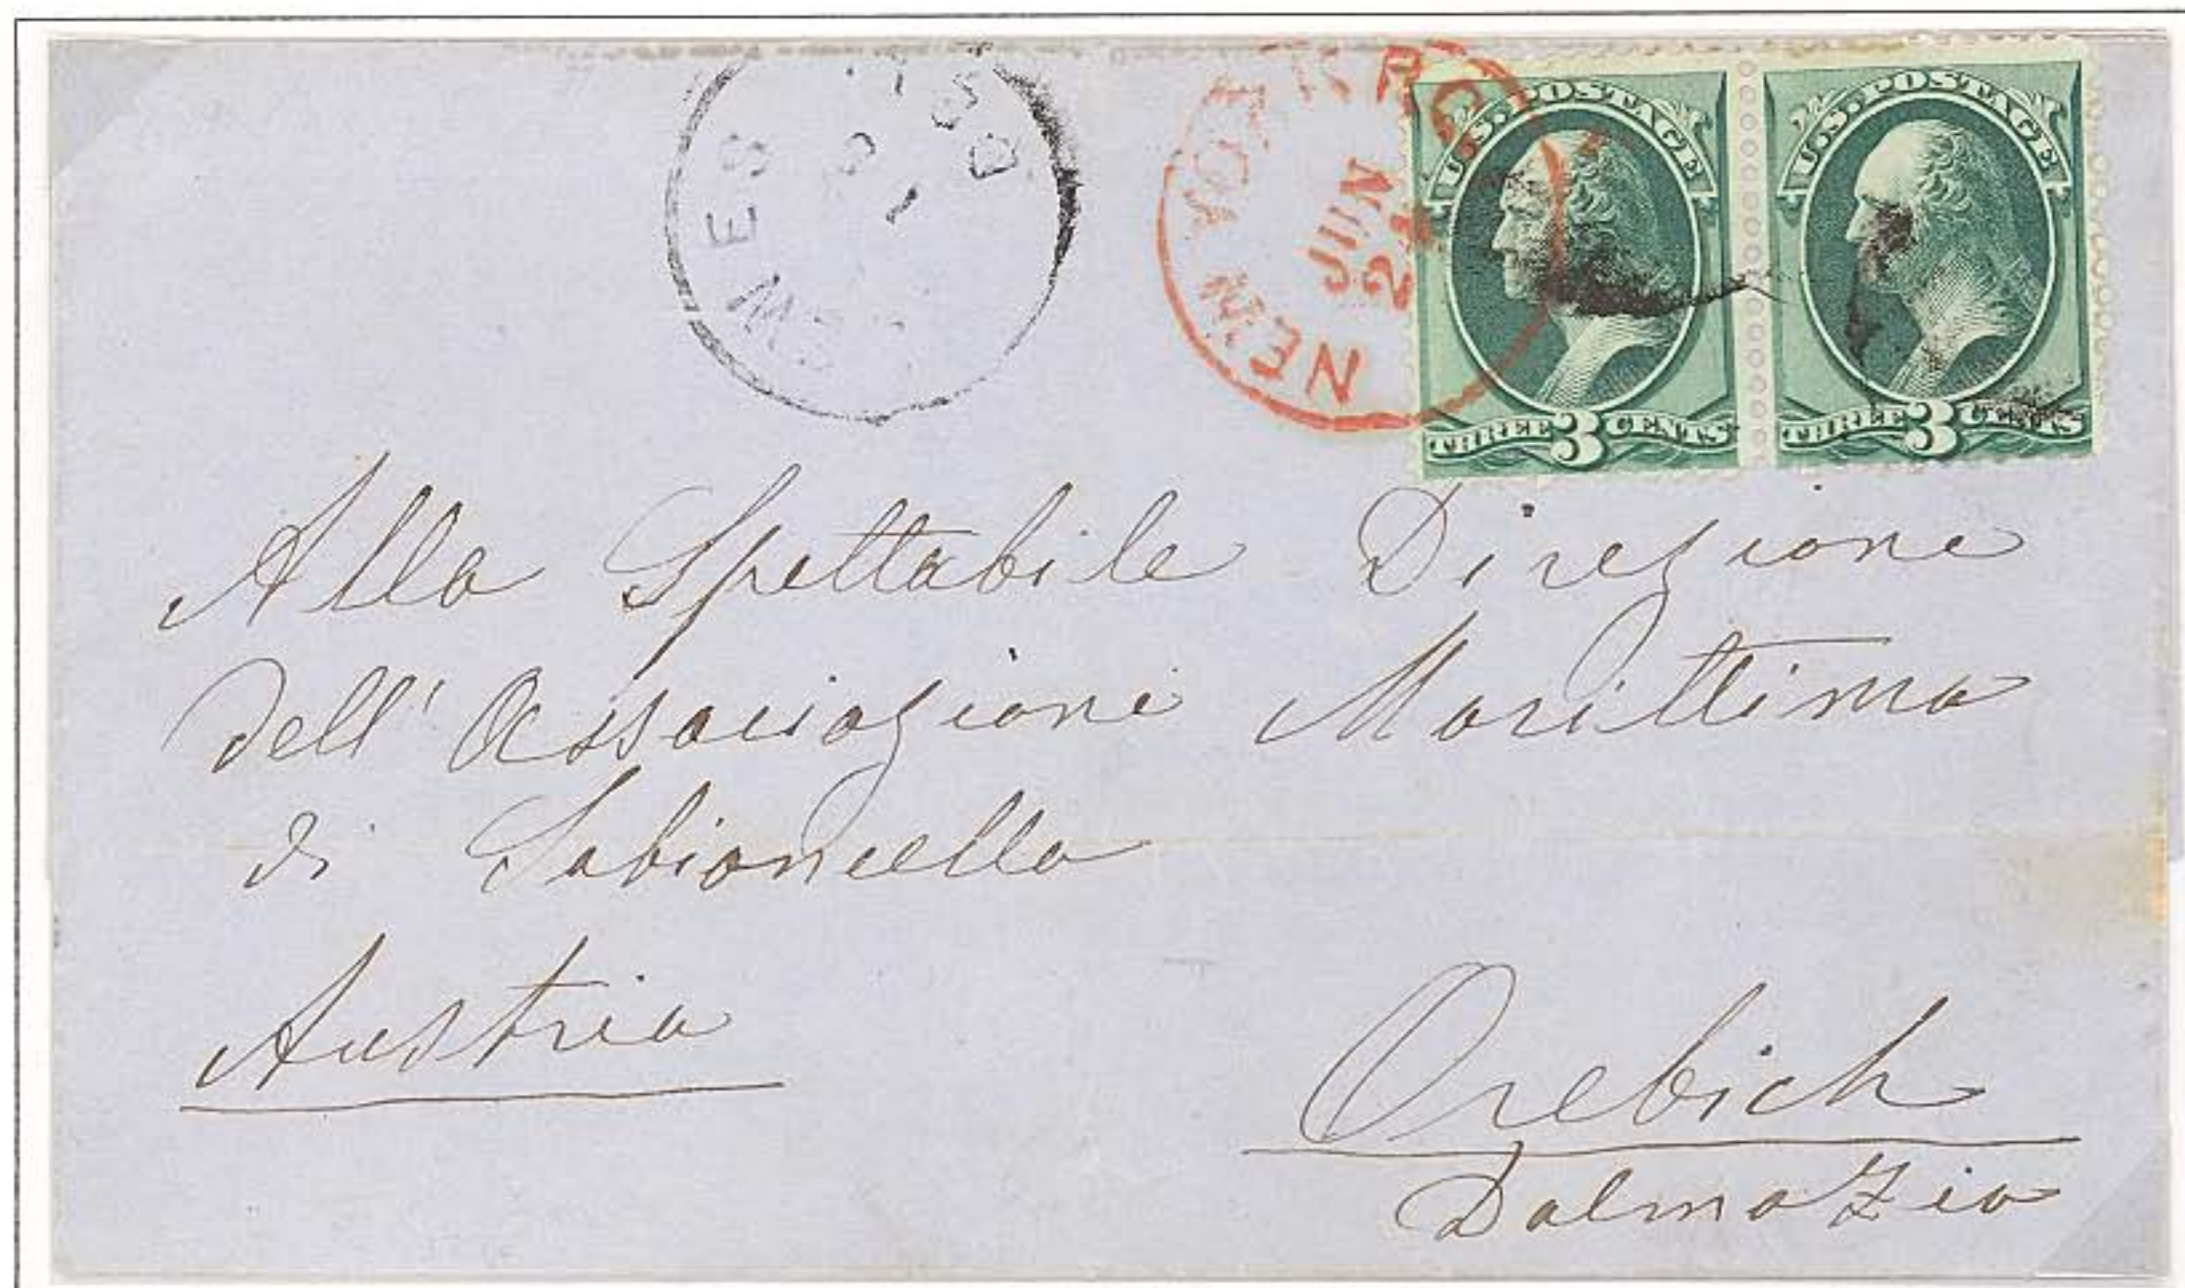 NEW YORK
JUN
24
U.S. POSTAGE
THREE 3 CENTS
U.S. POSTAGE
THREE 3 CENTS
Alla Spettabile Direzione
dell' Associazione Marittima
di Sabioncello
Austria
Orebich
Dalmazia